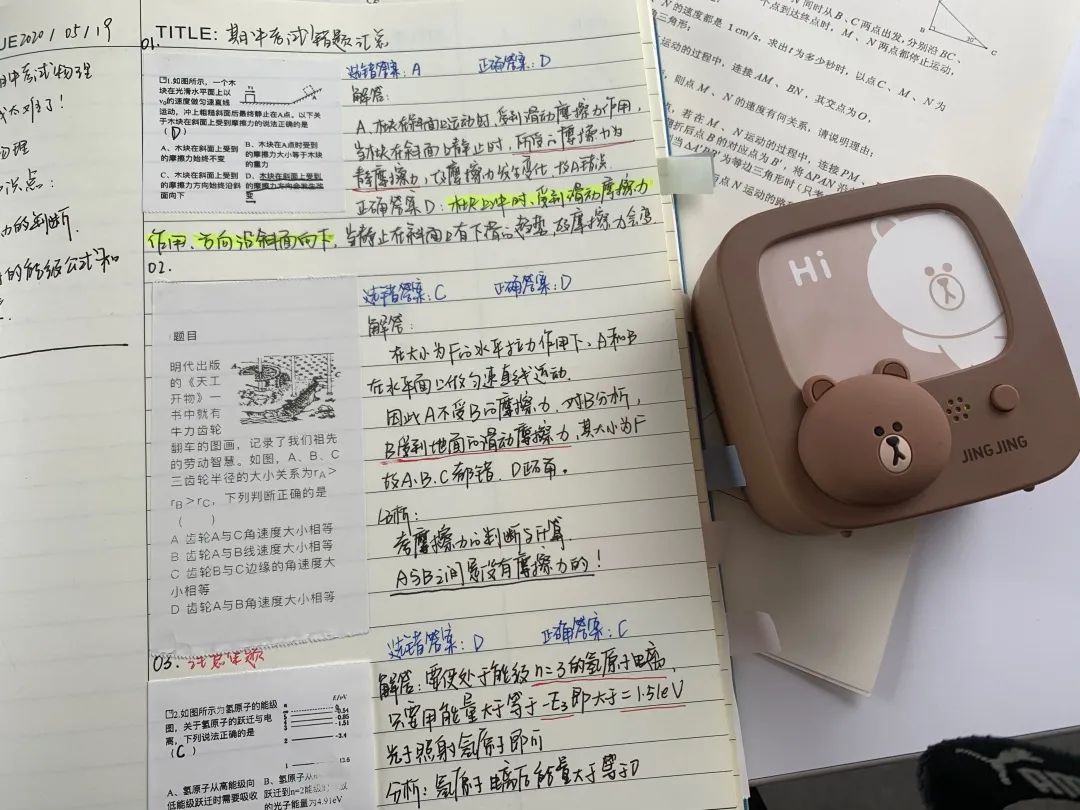 UE2020 / 05 / 19
期中考试物理
太难了!
01.
TITLE: 期中考试错题汇总
选错答案: A 正确答案: D
1.如图所示,一个木
块在光滑水平面上以
v₀的速度做匀速直线
运动,冲上粗糙斜面后最终静止在A点。以下关
于木块在斜面上受到摩擦力的说法正确的是
(D)
A、木块在斜面上受到
的摩擦力始终不变
B、木块在A点时受到
的摩擦力大小等于木块
的重力
C、木块在斜面上受到
的摩擦力方向始终沿斜
面向下
D、木块在斜面上受到
的摩擦力方向会发生改
变
解答:
A. 木块在斜面上运动时,受到滑动摩擦力作用,
当木块在斜面上静止时,所受的摩擦力为
静摩擦力,故摩擦力发生变化,故A错误
正确答案D: 木块上冲时,受到滑动摩擦力
作用、方向沿斜面向下,当静止在斜面上有下滑的趋势,故摩擦力会变
02.
选错答案: C 正确答案: D
题目
明代出版
的《天工
开物》一
书中就有
牛力齿轮
翻车的图画,记录了我们祖先
的劳动智慧。如图,A、B、C
三齿轮半径的大小关系为rA>
rB>rC,下列判断正确的是
( )
A 齿轮A与C角速度大小相等
B 齿轮A与B线速度大小相等
C 齿轮B与C边缘的角速度大
小相等
D 齿轮A与B角速度大小相等
解答:
在大小为F的水平拉力作用下,A和B
在水平面上做匀速直线运动.
因此A不受B的摩擦力,对B分析,
B受到地面的滑动摩擦力,其大小为F
故A、B、C都错,D正确。
分析:
考摩擦力的判断与计算
A与B之间是没有摩擦力的!
03.
选错答案: D 正确答案: C
2.如图所示为氢原子的能级
图,关于氢原子的跃迁与电
离,下列说法正确的是
(C)
E/eV
-0.54
-0.85
-1.51
2 -3.4
1 -13.6
A、氢原子从高能级向
低能级跃迁时需要吸收
B、氢原子从n
跃迁到n=2能级
的光子能量为4.91eV
解答: 要使处于能级n=3的氢原子电离,
只要用能量大于等于-E₃即大于=1.51eV
光子照射氢原子即可
分析: 氢原子电离后能量大于等于0
同时从B、C两点出发,分别沿BC、
个点到达终点时,M、N两点都停止运动,
N的速度都是1 cm/s,求出t为多少秒时,以点C、M、N为
三角形;
运动的过程中,连接AM、BN,其交点为O,
则点M、N的速度有何关系,请说明理由;
若在M、N运动的过程中,连接PM、
B
C
30°
Hi
JING JING